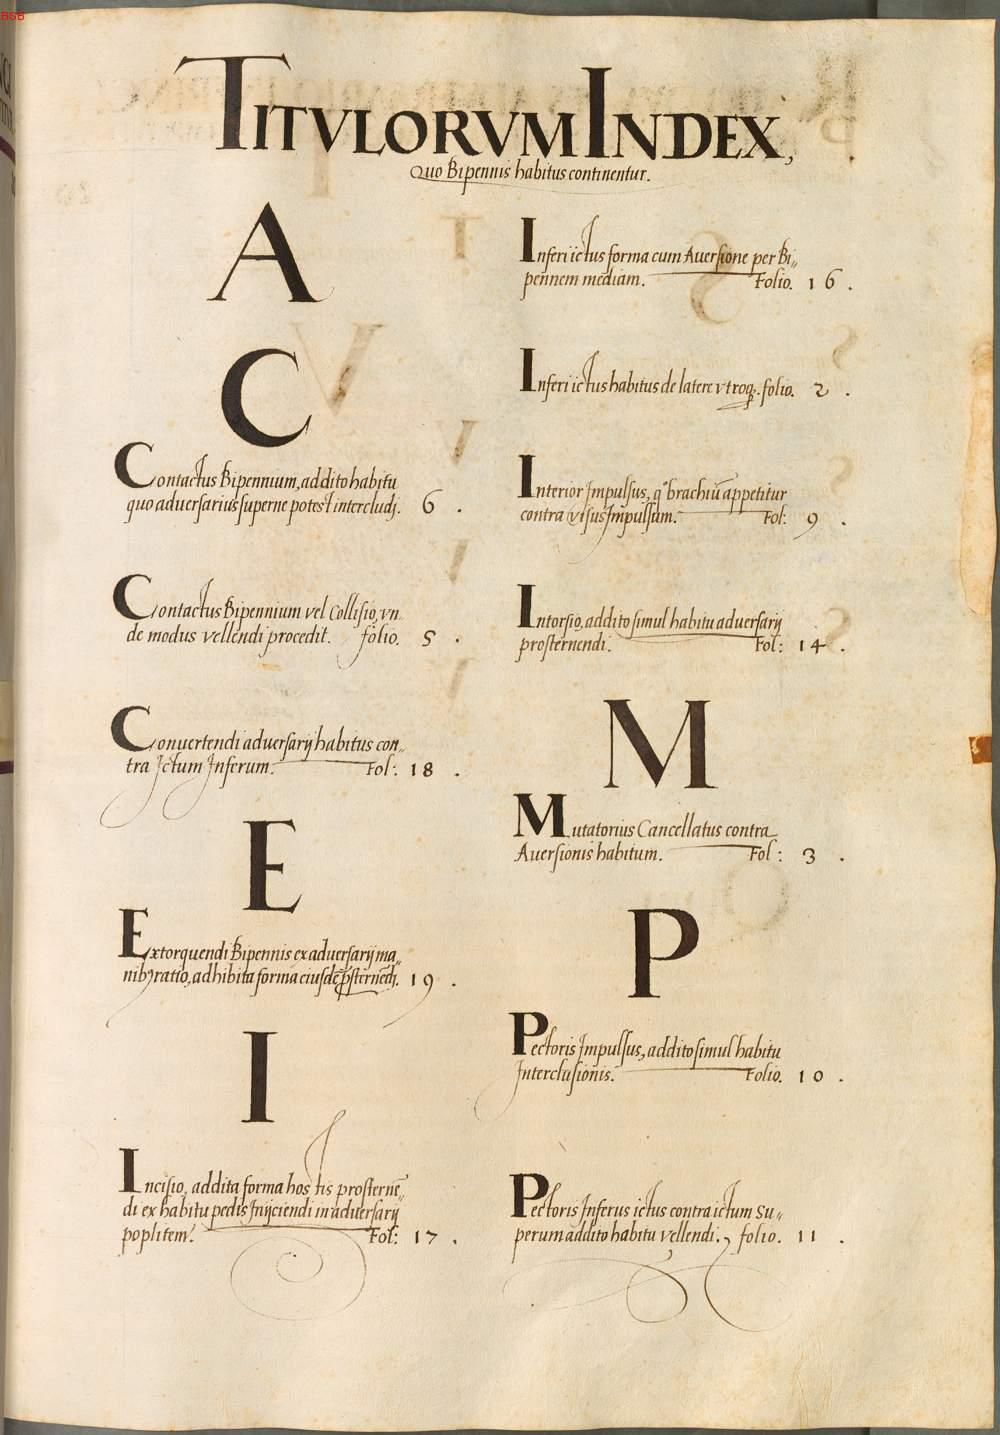 BSB
TITVLORVM INDEX,
Quo Bipennis habitus continentur.
A
C
Contactus Bipennium, addito habitu
quo aduersarius superne potest intercludj. 6 .
Contactus Bipennium vel Collisio, vn
de modus vellendi procedit. folio. 5 .
Conuertendi aduersarij habitus con„
tra Jctum Jnferum. Fol: 18 .
E
Extorquendi Bipennis ex aduersarij ma„
nibꝫ ratio, adhibita forma eiusdē ꝓsternēdi. 19 .
I
Incisio, addita forma hostis prosternē„
di ex habitu pedis Jnijciendi in aduersarij
poplitem. Fol: 17 .
Inferi ictus forma cum Auersione per Bi„
pennem mediam. Folio. 16 .
Inferi ictus habitus de latere vtroqꝫ. folio. 2 .
Interior Jmpulsus, qº brachiū appetitur
contra visus Jmpulsum. Fol: 9 .
Intorsio, addito simul habitu aduersarij
prosternendi. Fol: 14 .
M
Mutatorius Cancellatus contra
Auersionis habitum. Fol: 3 .
P
Pectoris Jmpulsus, addito simul habitu
Jnterclusionis. Folio. 10 .
Pectoris Jnferus ictus contra ictum Su„
perum addito habitu vellendi. folio. 11 .